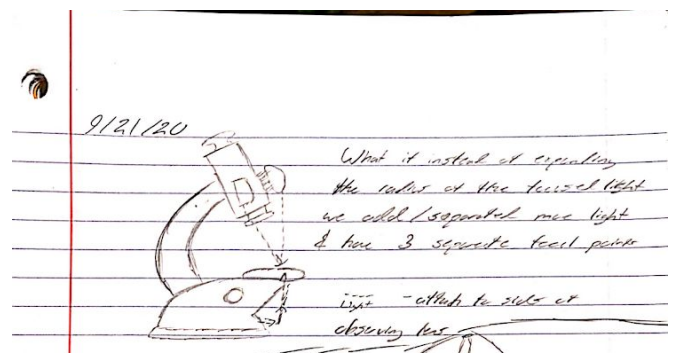 9/21/20
What if instead of expanding
the radius of the focused light
we add/separated more light
& have 3 separate focal points
Light - attach to side of
observing lens